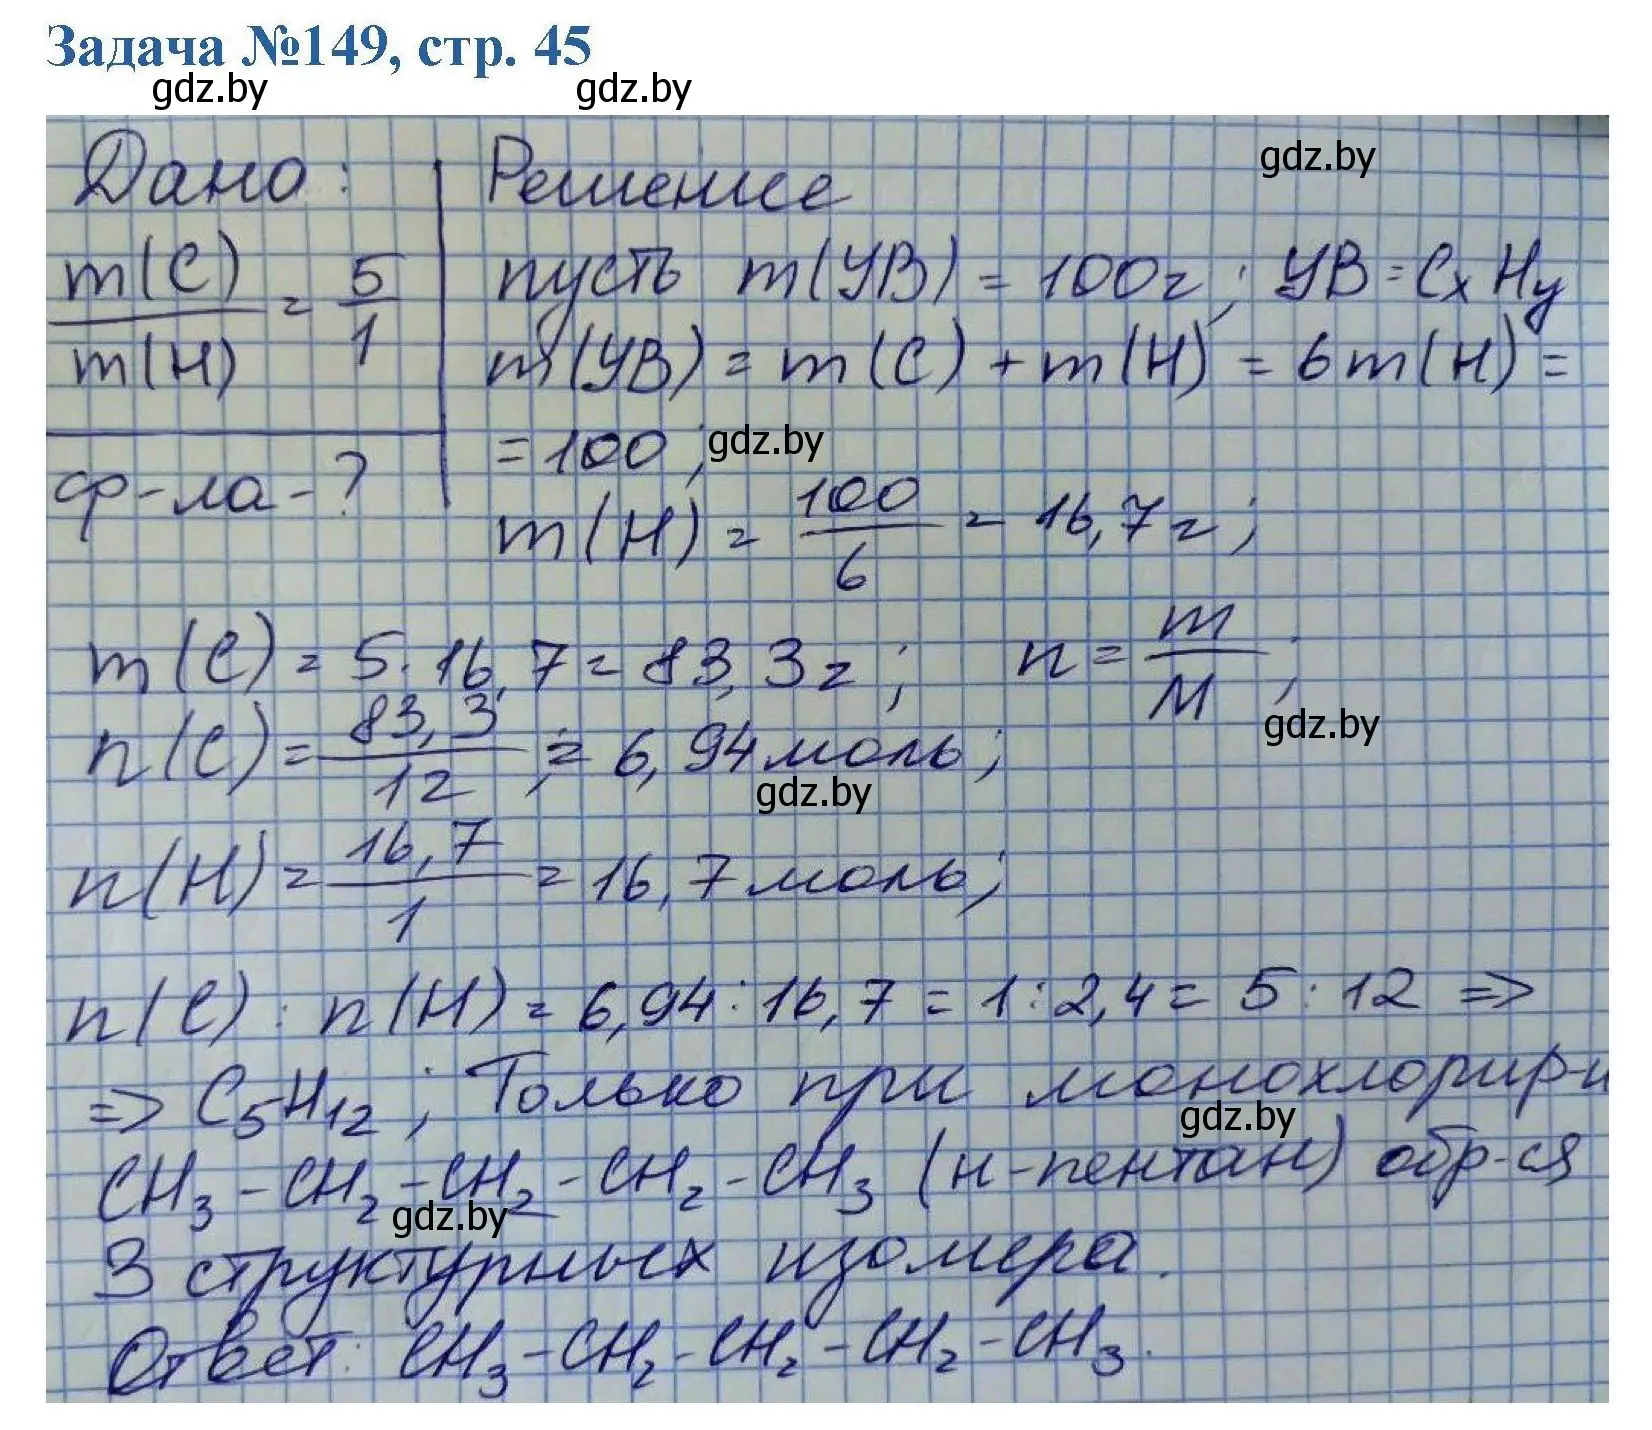 Задача №149, стр. 45
gdz.by gdz.by
Дано: Решение gdz.by
m(C)/m(H) = 5/1 пусть m(УВ) = 100г; УВ = CxHy
m(УВ) = m(C) + m(H) = 6m(H) =
ф-ла-? = 100; gdz.by
m(H) = 100/6 = 16,7г;
m(C) = 5·16,7 = 83,3г; n = m/M;
gdz.by
n(C) = 83,3/12 = 6,94 моль;
gdz.by
n(H) = 16,7/1 = 16,7 моль;
n(C) : n(H) = 6,94 : 16,7 = 1 : 2,4 = 5 : 12 =>
=> C5H12; Только при монохлорир-и
gdz.by
CH3-CH2-CH2-CH2-CH3 (н-пентан) обр-ся
gdz.by
3 структурных изомера.
Ответ: CH3-CH2-CH2-CH2-CH3.